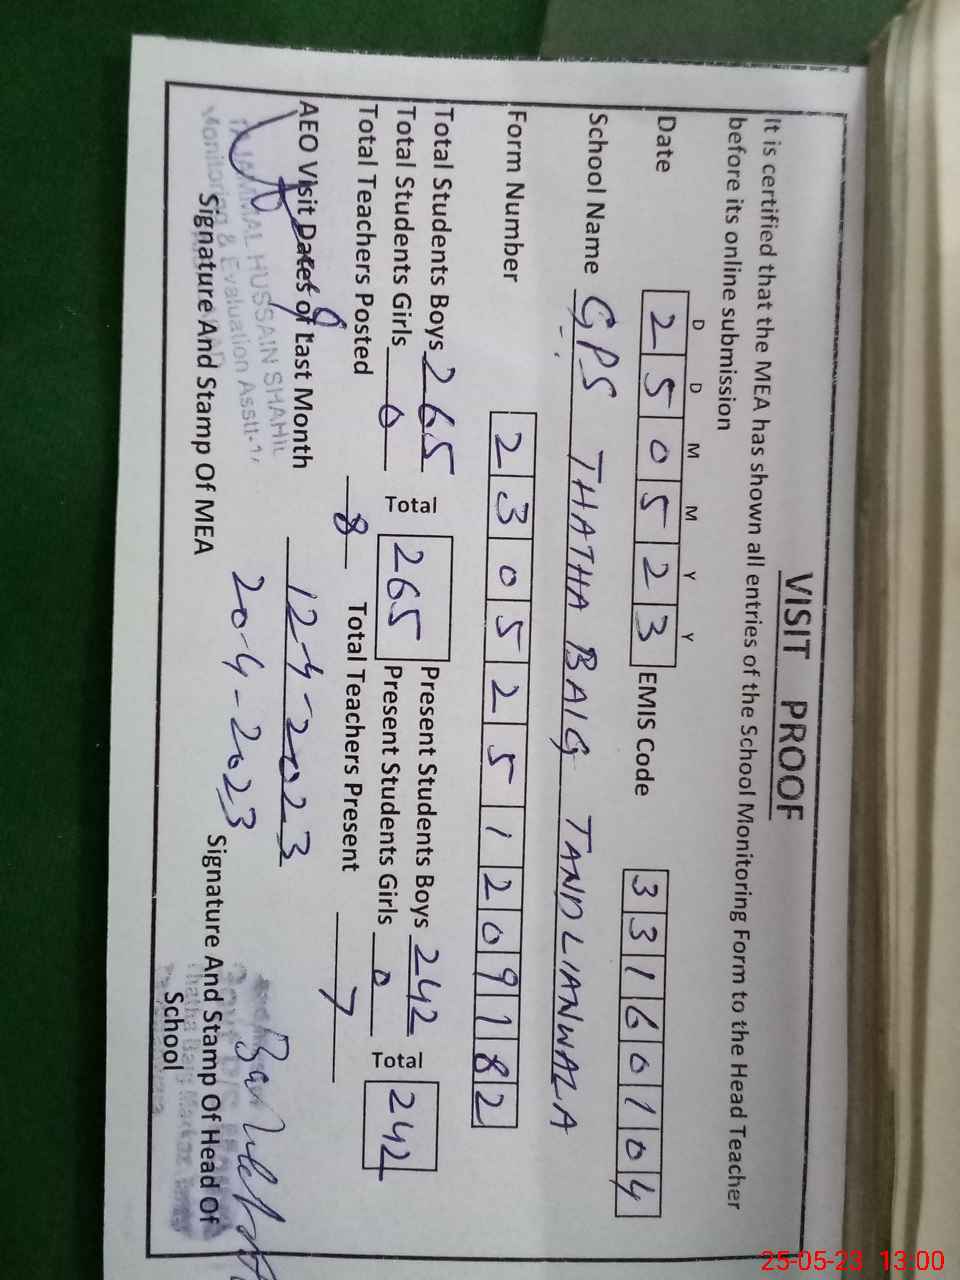 VISIT PROOF
It is certified that the MEA has shown all entries of the School Monitoring Form to the Head Teacher
before its online submission
D D M M Y Y
Date 2 5 0 5 2 3 EMIS Code 3 3 1 6 0 1 0 4
School Name GPS THATHA BAIG TANDLIANWALA
Form Number 2 3 0 5 2 5 1 2 0 9 1 8 2
Total Students Boys 265 Total 265 Present Students Boys 242 Total 242
Total Students Girls 0 Present Students Girls 0
Total Teachers Posted 8 Total Teachers Present 7
AEO Visit Dates of Last Month 12-4-2023
20-4-2023
TAJAMMAL HUSSAIN SHAHI
Monitoring & Evaluation Asstt-1
Signature And Stamp Of MEA
Signature And Stamp Of Head Of
School
25-05-23 13:00